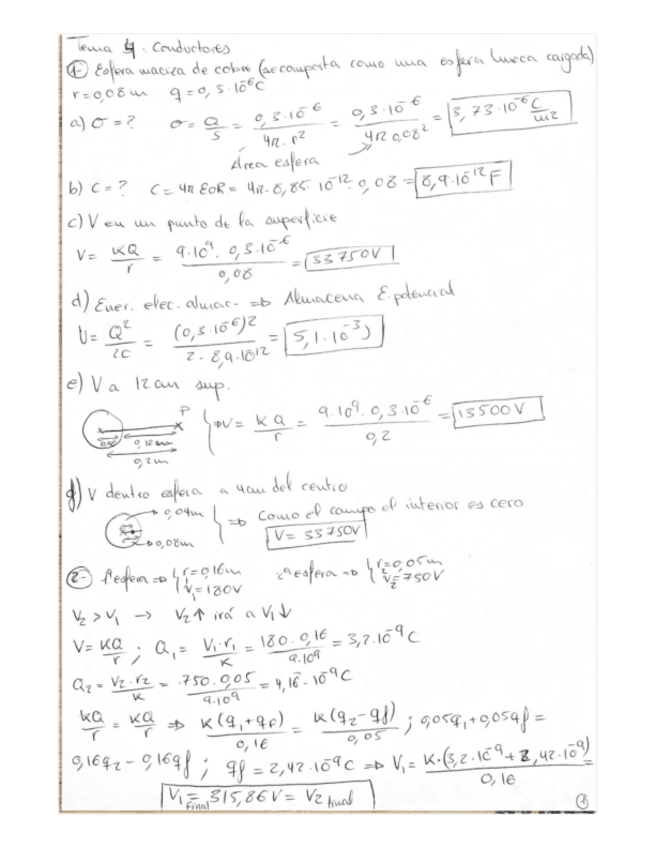 Tema 4. Conductores
1- Esfera maciza de cobre (se comporta como una esfera hueca cargada)
r = 0,08 m q = 0,3·10⁻⁶ C
a) σ = ? σ = Q/S = 0,3·10⁻⁶/4π·r² = 0,3·10⁻⁶/4π 0,08² = 3,73·10⁻⁶ C/m²
Área esfera
b) C = ? C = 4π ε0 R = 4π·8,85·10⁻¹²·0,08 = 8,9·10⁻¹² F
c) V en un punto de la superficie
V = KQ/r = 9·10⁹·0,3·10⁻⁶/0,08 = 33750V
d) Ener. elec. almac. ⇒ Almacena E. potencial
U = Q²/2C = (0,3·10⁻⁶)2/2·8,9·10⁻¹² = 5,1·10⁻³ J
e) V a 12cm sup.
P
0,12m
0,2m
⇒ V = KQ/r = 9·10⁹·0,3·10⁻⁶/0,2 = 13500V
f) V dentro esfera a 4cm del centro
0,04m
0,08m
⇒ Como el campo el interior es cero
V = 33750V
2- 1ª esfera ⇒ { r = 0,16m V₁ = 180V 2ª esfera ⇒ { r₂ = 0,05m V₂ = 750V
V₂ > V₁ → V₂↑ irá a V₁↓
V = KQ/r ; Q₁ = V₁·r₁/K = 180·0,16/9·10⁹ = 3,2·10⁻⁹ C
Q₂ = V₂·r₂/K = 750·0,05/9·10⁹ = 4,16·10⁻⁹ C
KQ/r = KQ/r ⇒ K(q₁+qf)/0,16 = K(q₂-qf)/0,05 ; 0,05q₁+0,05qf =
0,16q₂ - 0,16qf ; qf = 2,42·10⁻⁹ C ⇒ V₁ = K·(3,2·10⁻⁹ + 2,42·10⁻⁹)/0,16 =
V₁ final = 315,86V = V₂ final
1